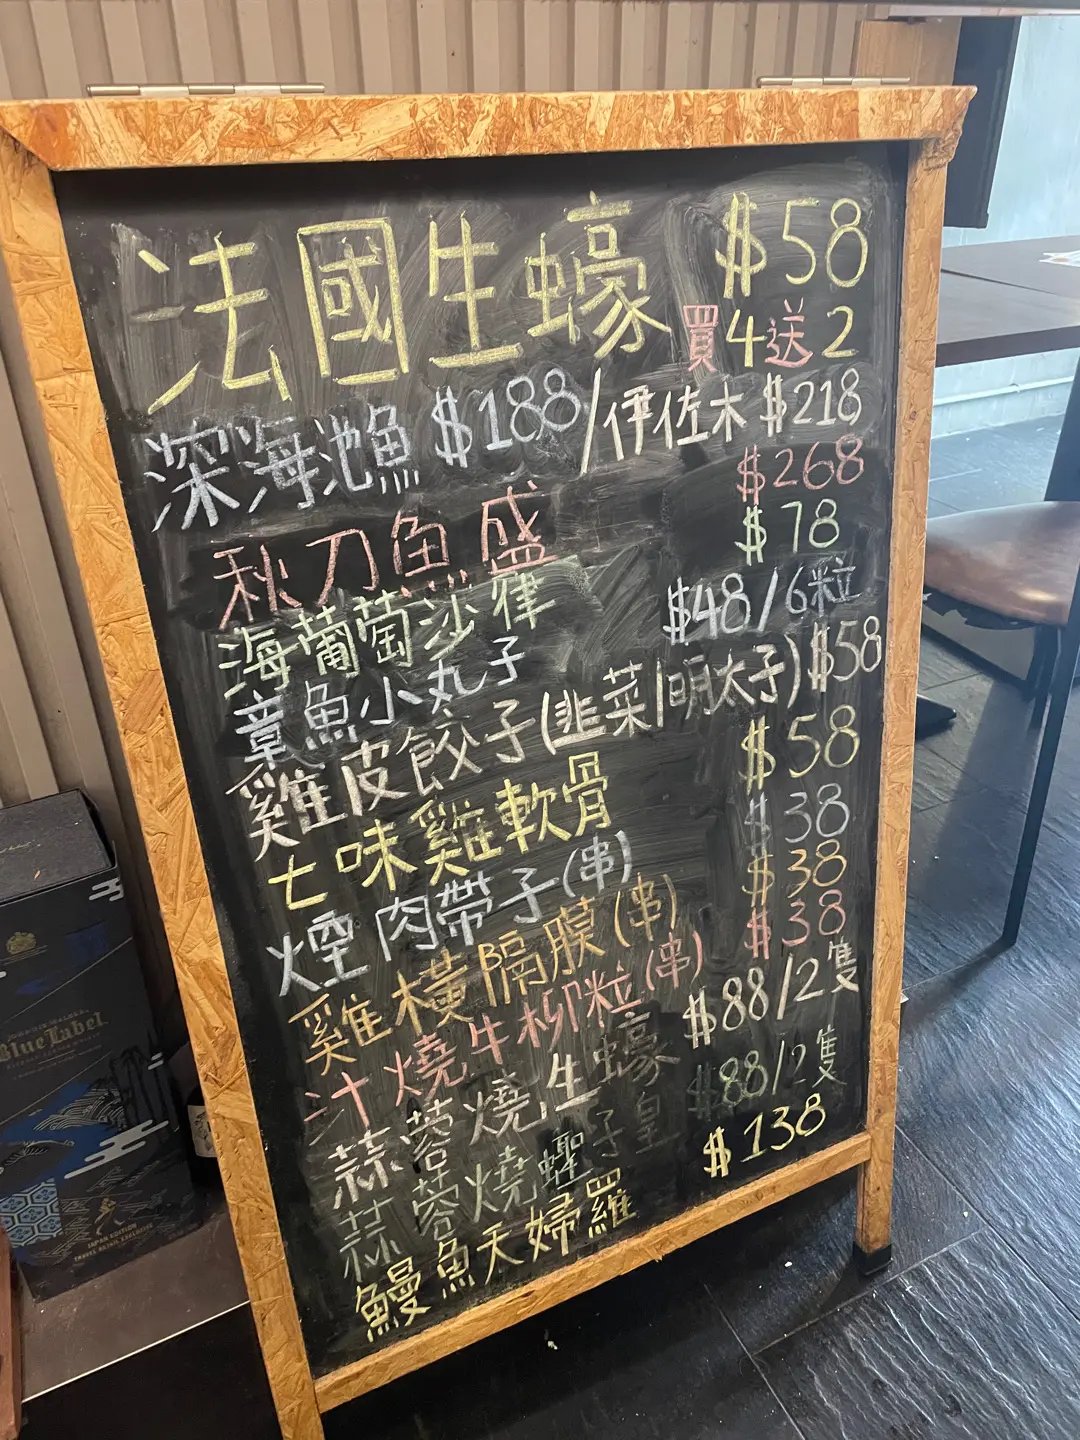 法國生蠔 $58
買4送2
深海池魚 $188/伊佐木 $218
秋刀魚盛 $268
海葡萄沙律 $78
章魚小丸子 $48/6粒
雞皮餃子(韭菜/明太子) $58
七味雞軟骨 $58
煙肉帶子(串) $38
雞橫隔膜(串) $38
汁燒牛柳粒(串) $38
蒜蓉燒生蠔 $88/2隻
蒜蓉燒蟶子皇 $88/2隻
鰻魚天婦羅 $138
Blue Label
JAPAN EDITION